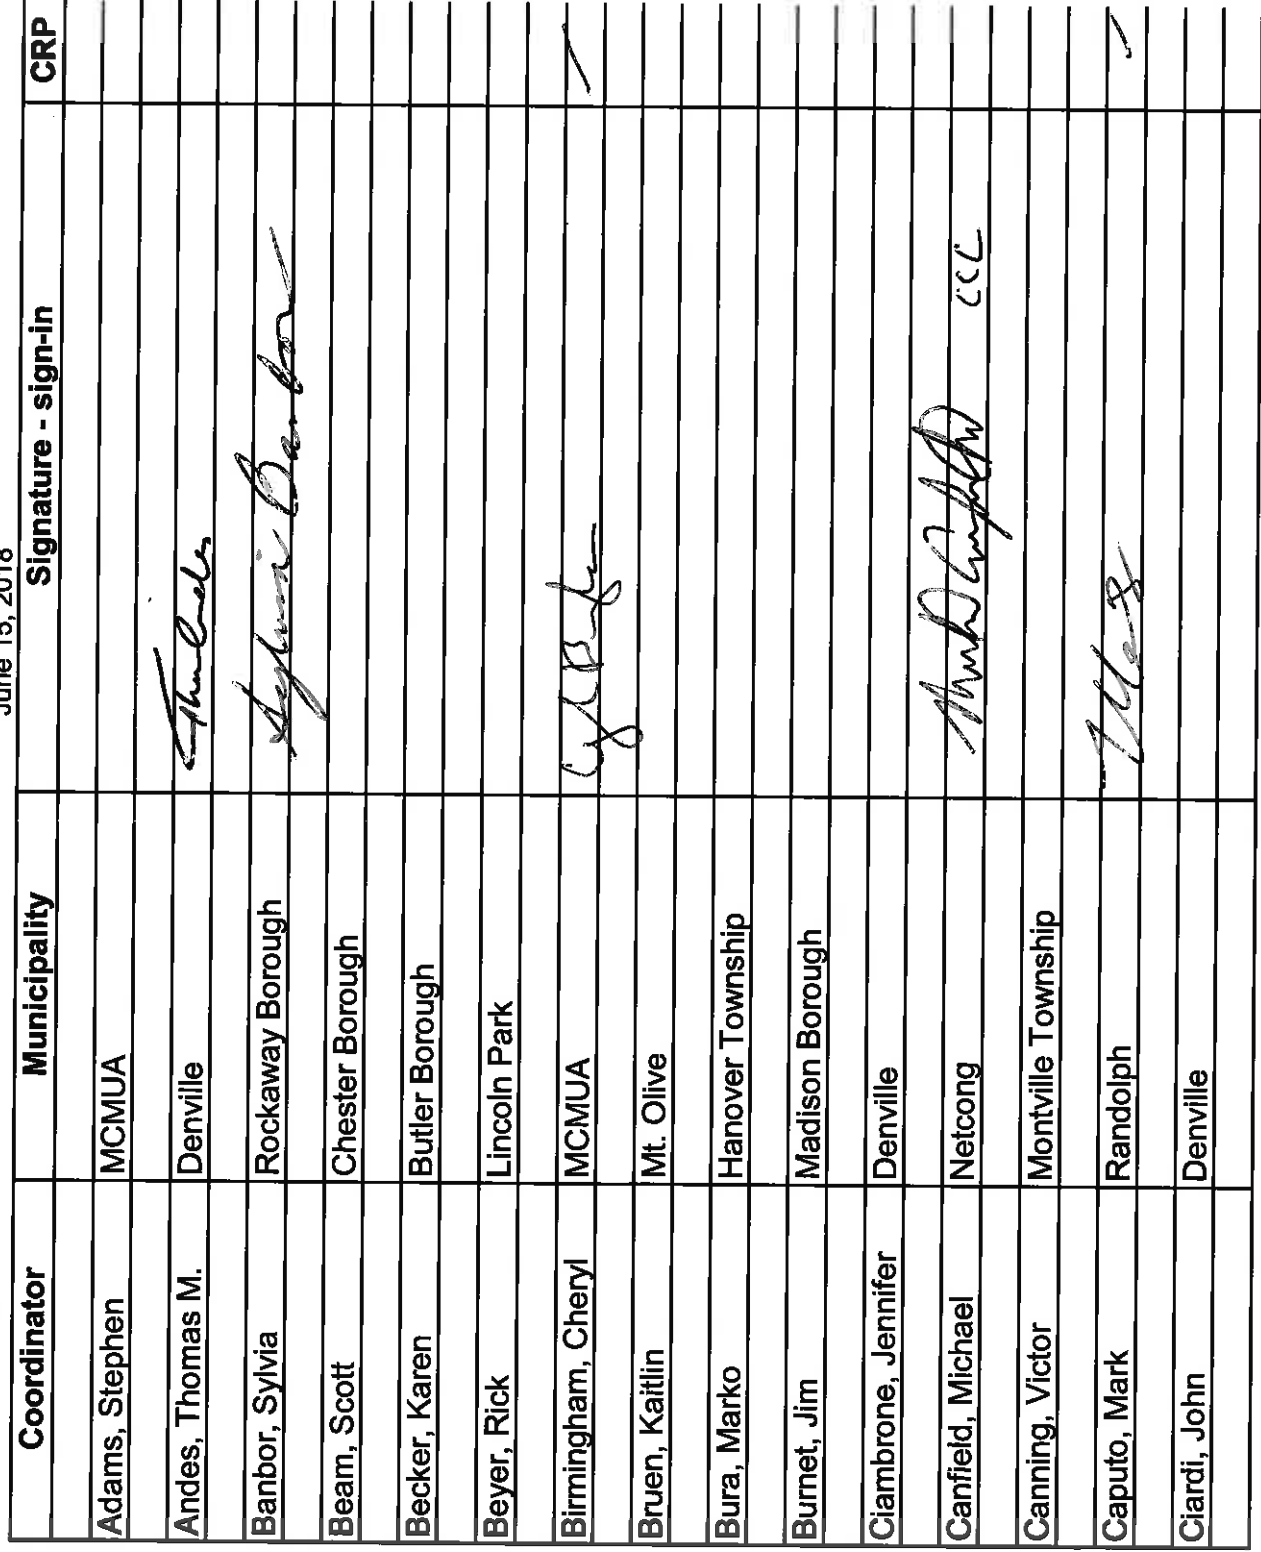 June 15, 2018
Coordinator Municipality Signature - sign-in CRP
Adams, Stephen MCMUA
Andes, Thomas M. Denville
Banbor, Sylvia Rockaway Borough Sylvia Banbor
Beam, Scott Chester Borough
Becker, Karen Butler Borough
Beyer, Rick Lincoln Park
Birmingham, Cheryl MCMUA ✓
Bruen, Kaitlin Mt. Olive
Bura, Marko Hanover Township
Burnet, Jim Madison Borough
Ciambrone, Jennifer Denville
Canfield, Michael Netcong
Canning, Victor Montville Township
Caputo, Mark Randolph ✓
Ciardi, John Denville